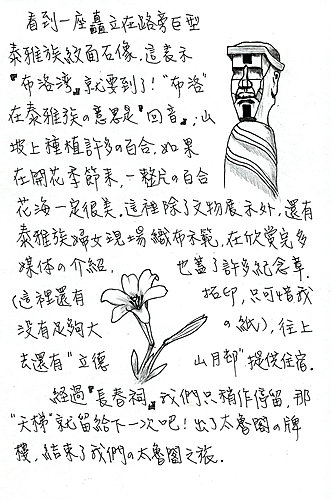 看到一座矗立在路旁巨型
泰雅族紋面石像，這表示
『布洛灣』就要到了！"布洛"
在泰雅族の意思是『回音』；山
坡上種植許多の百合，如果
在開花季節來，一整片の百合
花海一定很美。這裡除了文物展示外，還有
泰雅族婦女現場織布示範，在欣賞完多
媒体の介紹，也蓋了許多紀念章.
(這裡還有拓印，只可惜我
沒有足夠大の紙)，往上
去還有"立德山月邨"提供住宿.
經過『長春祠』我們只稍作停留，那
"天梯"就留給下一次吧！出了太魯閣の牌
樓，結束了我們の太魯閣之旅.